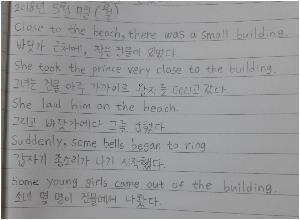 2018년 5월 7일 (월)
Close to the beach, there was a small building.
바닷가 근처에, 작은 건물이 있었다.
She took the prince very close to the building.
그녀는 건물 아주 가까이로 왕자를 데리고 갔다.
She laid him on the beach.
그리고 바닷가에다 그를 눕혔다.
Suddenly, some bells began to ring
갑자기 종소리가 나기 시작했다.
Some young girls came out of the building.
소녀 몇 명이 건물에서 나왔다.